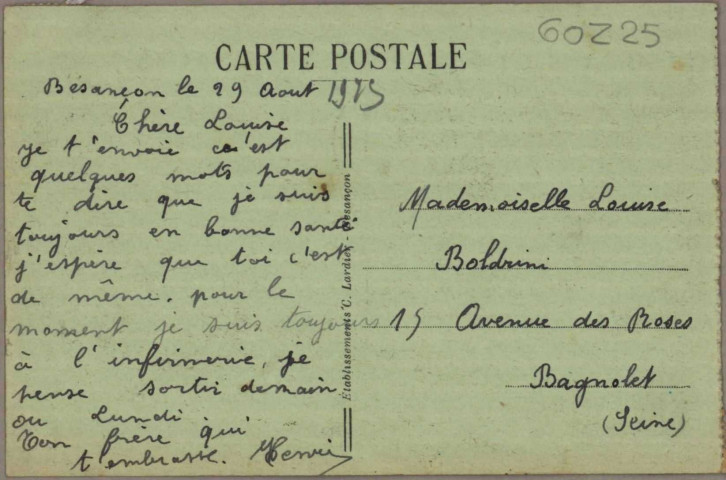 60Z25
CARTE POSTALE
Besançon le 29 Aout 1925
Chère Louise
je t'envoie ces
quelques mots pour
te dire que je suis
toujours en bonne santé
j'espère que toi c'est
de même. pour le
moment je suis toujours
à l'infirmerie, je
pense sortir demain
ou Lundi
Ton frère qui
t'embrasse. Henri
Établissements C. Lardier - Besançon
Mademoiselle Louise
Boldrini
15 Avenue des Roses
Bagnolet
(Seine)